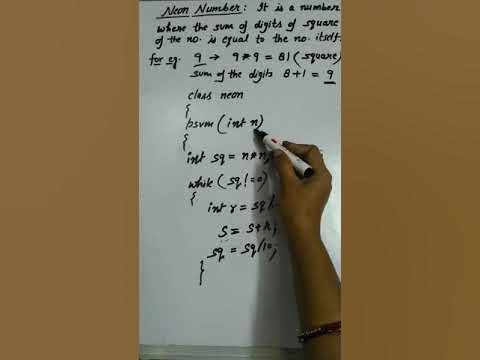 Neon Number: It is a number
where the sum of digits of square
of the no. is equal to the no. itself.
for eg. 9 → 9*9 = 81 (square)
sum of the digits 8+1 = 9
class neon
{
psvm (int n)
{
int sq = n*n;
while (sq!=0)
{
int r = sq%
S = S+r;
sq = sq/10;
}